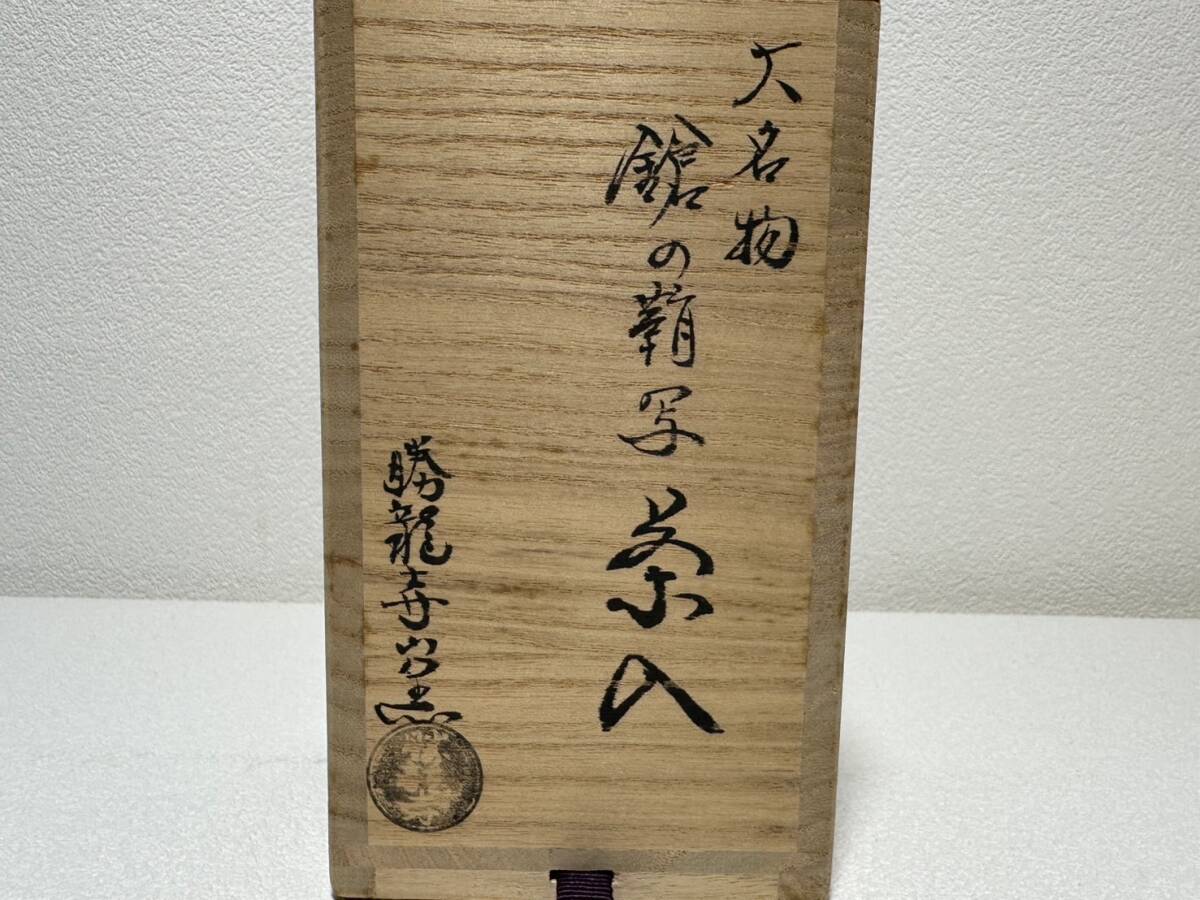 大名物
鎗の鞘写茶入
勝龍寺窯